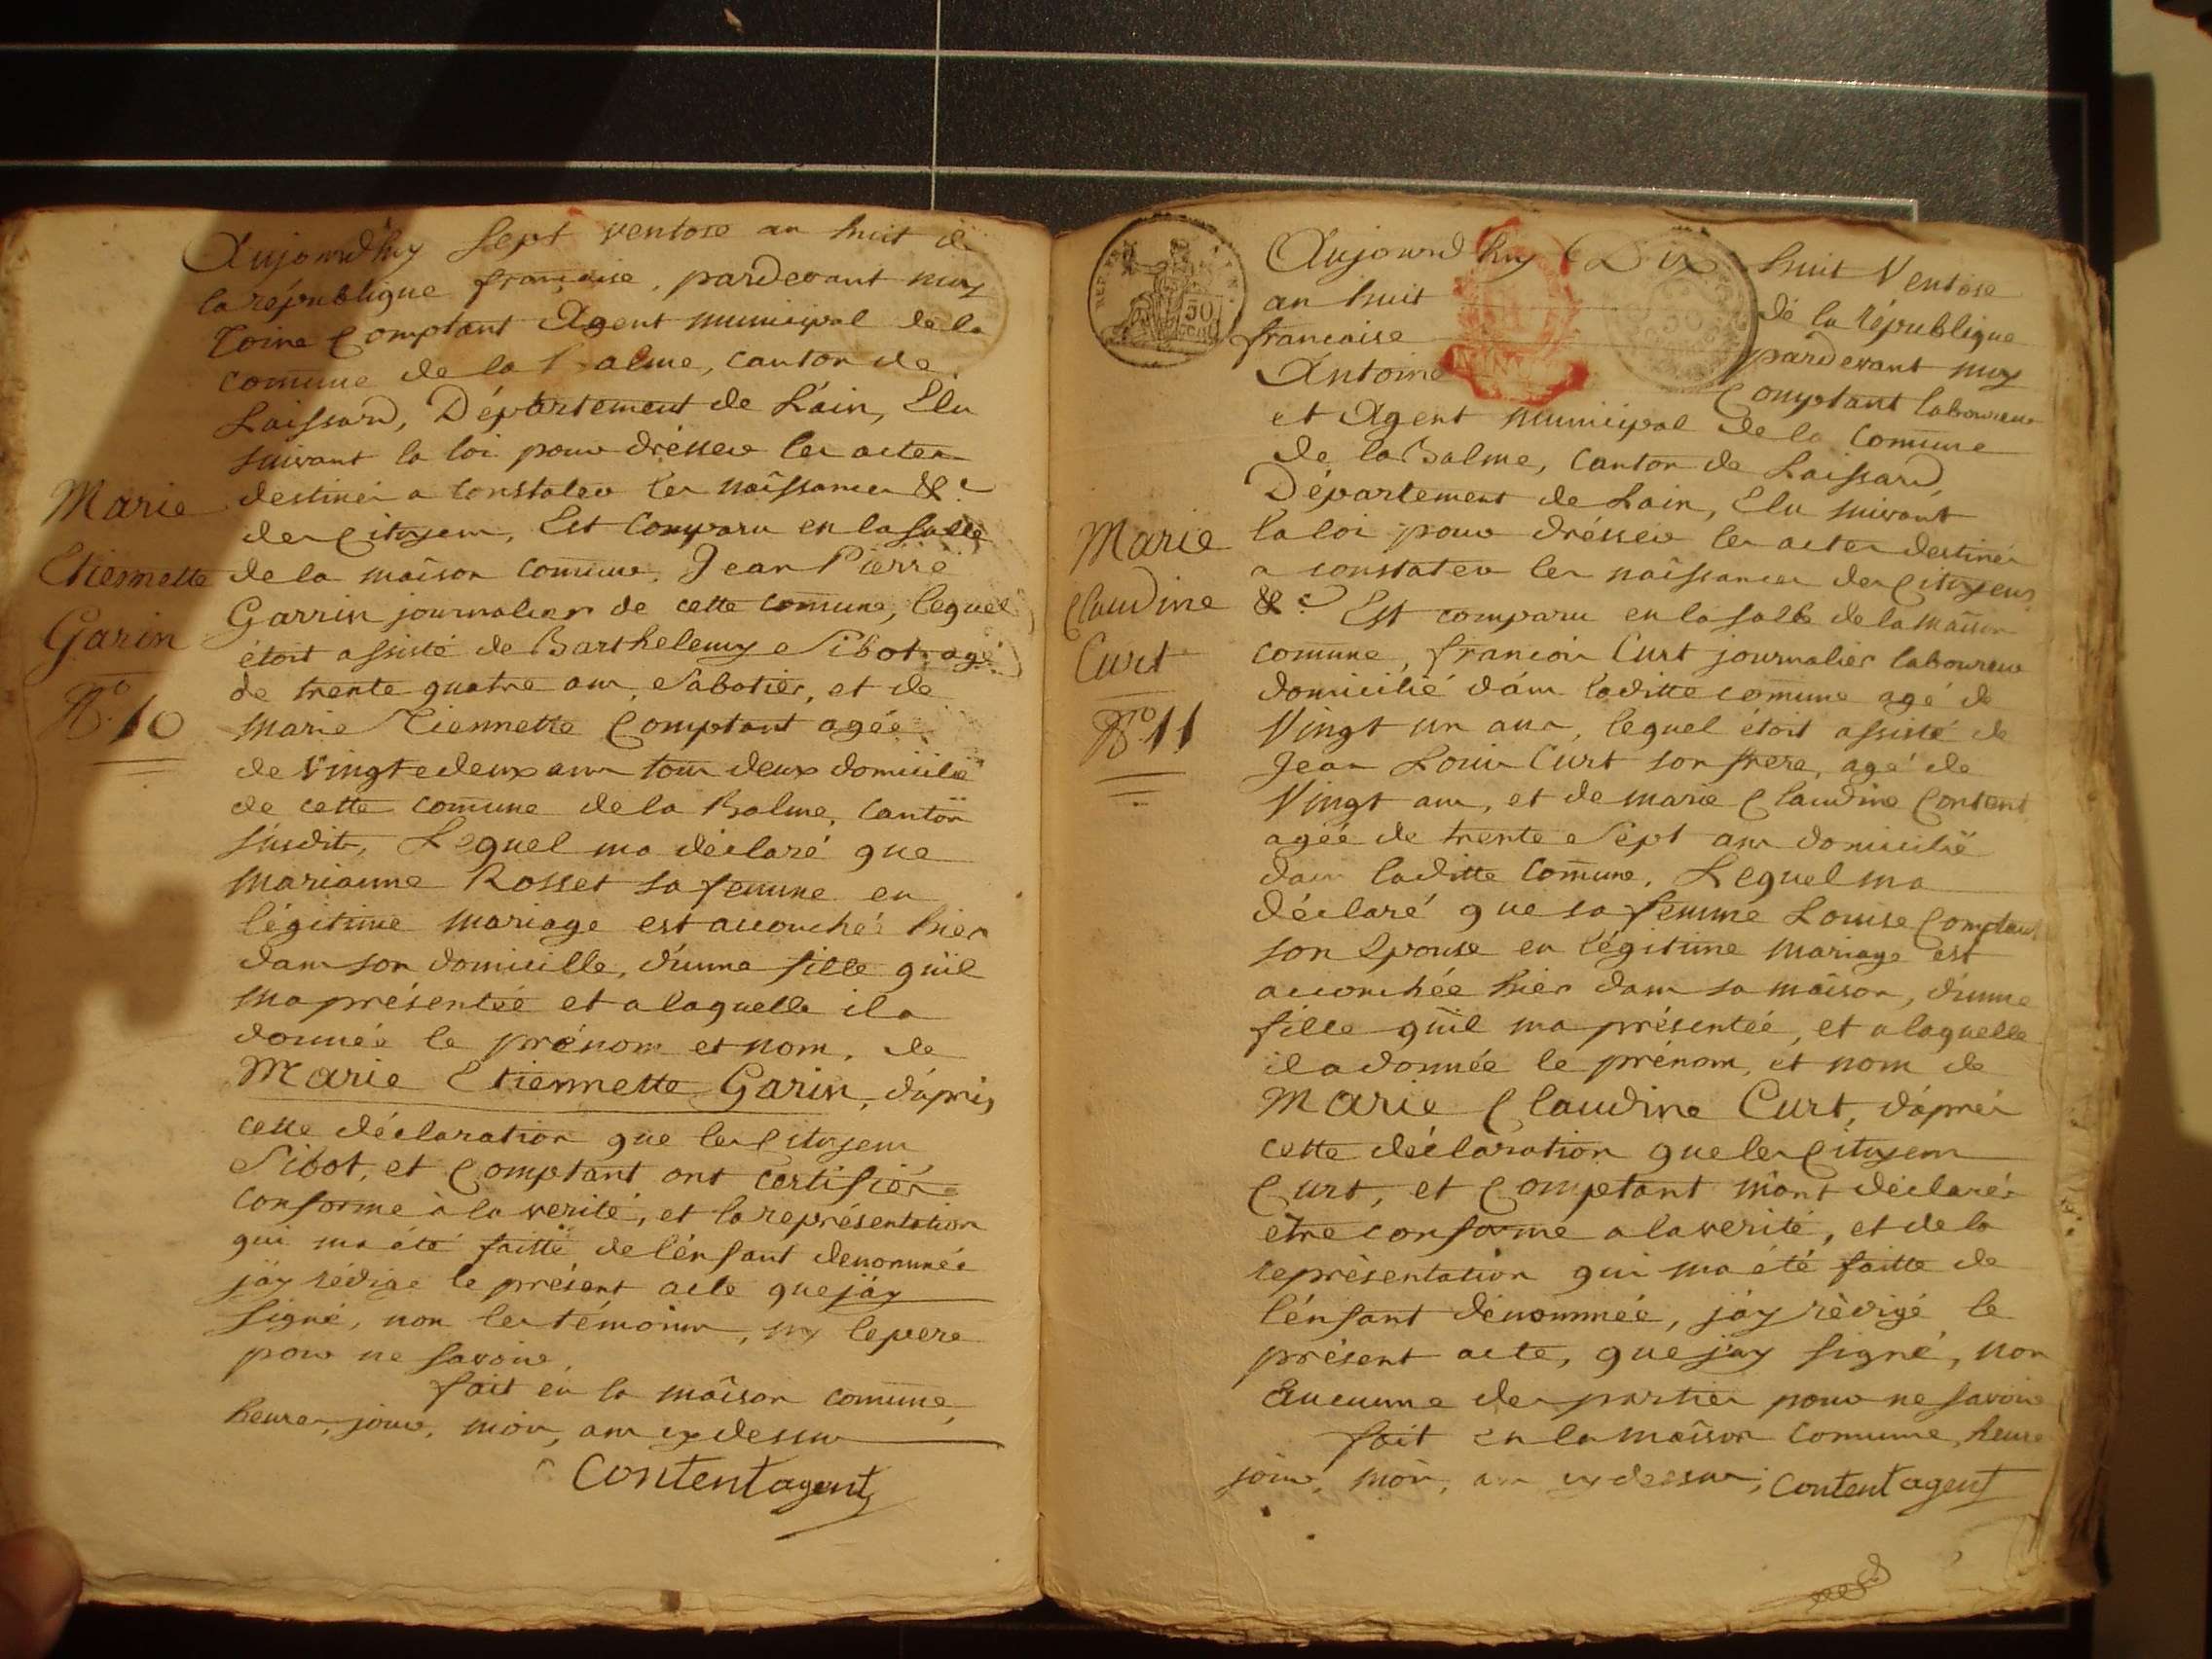 Aujourd'huy Sept ventose an huit de
la république française, pardevant moy
toine Comptant Agent municipal de la
commune de la Balme, canton de
Laissard, Département de Lain, Elu
suivant la loi pour dresser les actes
Marie
destinés a constater les naîssances &c
des Citoyens, Est Comparu en la salle
Etiennette
de la maîson comune, Jean Pierre
Garrin journalier de cette comune, lequel
Garin
étoit assisté de Barthelemy Sibot agé
de trente quatre ans, Sabotier, et de
N° 10
marie Etiennette Comptant agée
de Vingtedeux ans tous deux domicilié
de cette comune de la Balme, canton
susdit, Lequel ma déclaré que
marianne Rosset sa femme en
légitime mariage est accouchée hier
dans son domicille, d'unne fille qu'il
ma présentée et a laquelle il a
donnée le prénom et nom, de
Marie Etiennette Garin, d'après
cette déclaration que les Citoyens
Sibot, et Comptant ont certifiér
conforme à la verité, et la représentation
qui ma été faitte de l'énfant denommée
j'ay rédigé le présent acte que j'ay
signé, non les témoins, ny le pere
pour ne savoir.
fait en la maîson comune,
heures, jour, mois, ans cy dessus
Content agent
REP. FRA.
50
CENT.
Aujourdhuy Dix huit Ventose
an huit de la république
francaise pardevant moy
Antoine Comptant laboureur
et Agent municipal de la comune
de la Balme, Canton de Laissard
Département de Lain, Elu suivant
Marie
la loi pour drésser les actes destinés
a constater les naîssances des Citoyens
Claudine
&c Est comparu en la salle de la maîson
Curt
comune, francois Curt journalier laboureur
domicilié dans laditte comune agé de
N° 11
Vingt un ans, lequel étoit assisté de
Jean Louis Curt son frere, agé de
Vingt ans, et de marie Claudine Content
agéé de trente Sept ans domicilié
dans laditte Comune, Lequel ma
déclaré que sa femme Louise Comptant
son Epouse en légitime mariage est
accouchée hier dans sa maîson, d'unne
fille qu'il ma présentéé, et a laquelle
il a donnée le prénom, et nom de
Marie Claudine Curt, d'aprés
cette déclaration que les Citoyens
Curt, et Comptant m'ont déclarés
être conforme a la verité, et de la
représentation qui ma été faitte de
l'énfant dénommée, j'ay rédigé le
présent acte, que j'ay signé, non
Aucunne des parties pour ne savoir
fait en la maîson comune, heure
jour, mois, an cy dessus, Content agent